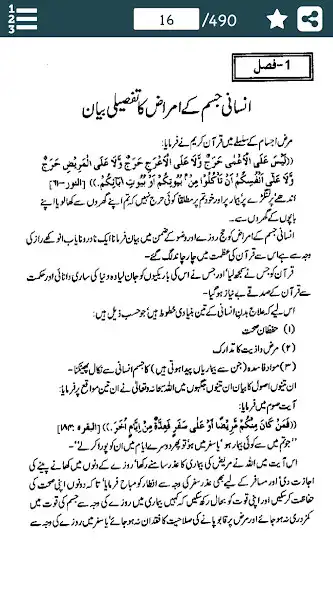 16 /490
1- فصل
انسانی جسم کے امراض کا تفصیلی بیان
مرض اجسام کے سلسلے میں قرآن کریم نے فرمایا:
((لَيْسَ عَلَى الْأَعْمٰى حَرَجٌ وَّلَا عَلَى الْأَعْرَجِ حَرَجٌ وَّلَا عَلَى الْمَرِيْضِ حَرَجٌ
وَّلَا عَلٰى أَنْفُسِكُمْ أَنْ تَأْكُلُوْا مِنْ بُيُوْتِكُمْ أَوْ بُيُوْتِ اٰبَائِكُمْ.)) [النور-٦١]
اندھے پر، لنگڑے پر، بیمار پر اور خود تم پر مطلقاً کوئی حرج نہیں کہ تم اپنے گھروں سے کھالو یا اپنے
باپوں کے گھروں سے۔
انسانی جسم کے امراض کو حج روزے اور وضو کے ضمن میں بیان فرمانا ایک نادر و نایاب انوکھے راز کی
وجہ سے ہے اس سے قرآن کی عظمت میں چار چاند لگ گئے۔
قرآن کو جس نے سمجھ لیا اور جس نے اس کی باریکیوں کو جان لیا وہ دنیا کی ساری دانائی اور حکمت
سے قرآن کے صدقے بے نیاز ہو گیا۔
اس لیے کہ علاج بدن انسانی کے تین بنیادی خطوط ہیں، جو حسب ذیل ہیں:
(۱) حفظان صحت
(۲) مرض و اذیت کا تدارک
(۳) مواد فاسدہ (جن سے بیماریاں پیدا ہوتی ہیں) کا جسم انسانی سے نکال پھینکنا۔
ان تینوں اصول کا بیان ان تینوں جگہوں میں اللہ سبحانہ وتعالیٰ نے ان تین مواقع پر فرمایا:
آیت صوم میں فرمایا:
((فَمَنْ كَانَ مِنْكُمْ مَّرِيْضًا أَوْ عَلٰى سَفَرٍ فَعِدَّةٌ مِنْ اَيَّامٍ اُخَرَ.)) [البقره ١٨٣]
”جو تم میں سے کوئی بیمار ہو یا سفر میں ہو تو پھر دوسرے ایام میں ان کو پورا کر لے“۔
اس آیت میں اللہ نے مریض کی بیماری کا عذر سامنے رکھا روزے کے دنوں میں کھانے پینے کی
اجازت دی اور مسافر کے لیے بھی عذر سفر کی وجہ سے افطار کو مباح فرمایا تاکہ دونوں اپنی صحت کی
حفاظت کر سکیں اور اپنی قوت کو بحال رکھ سکیں کہ کہیں بیماری میں روزے کی وجہ سے جسم کی قوت میں
کمزوری نہ ہو جائے اور مرض پر قابو پانے کی صلاحیت کا فقدان نہ ہو جائے یا سفر میں روزے کی وجہ سے